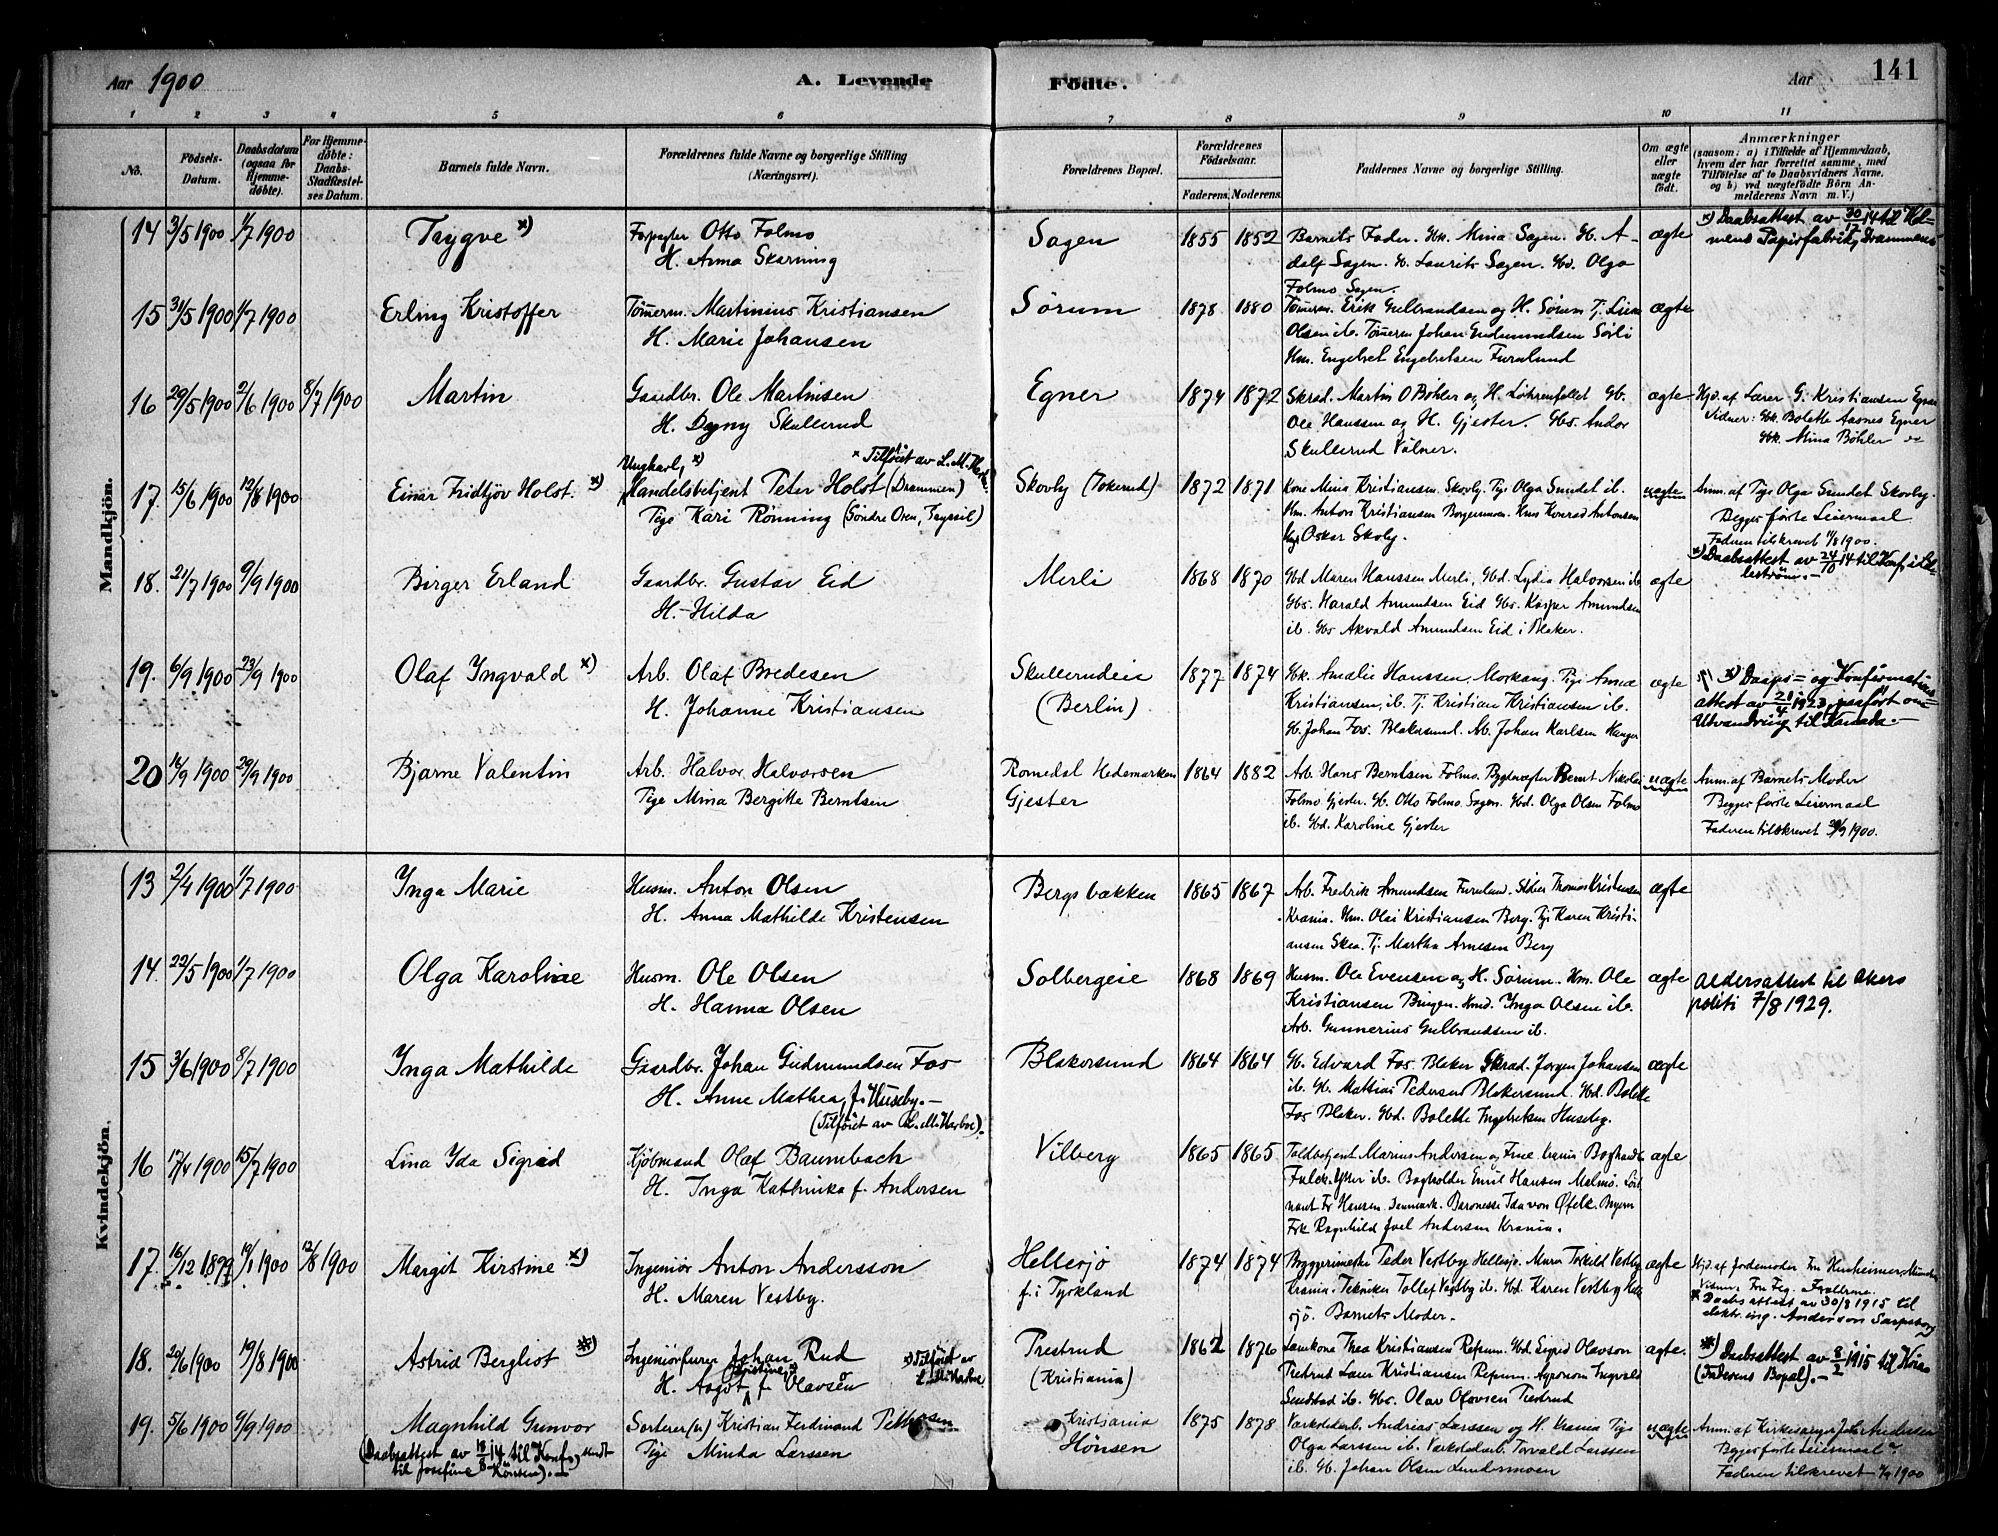 Aar 1900 A. Levende Fødte. Aar 141
1 2 3 4 5 6 7 8 9 10 11
No.
Fødsels-Datum.
Daabsdatum (ogsaa for Hjemmedøbte).
For Hjemmedøbte: Daabs-Stadfæstelses Datum.
Barnets fulde Navn.
Forældrenes fulde Navne og borgerlige Stilling (Næringsvei).
Forældrenes Bopæl.
Forældrenes Fødselsaar.
Faderens. Moderens.
Faddernes Navne og borgerlige Stilling.
Om ægte eller uægte født.
Anmærkninger
(saasom: a) i Tilfælde af Hjemmedaab, hvem der har forrettet samme, med Tilføielse af to Daabsvidners Navne, og b) ved uægtefødte Børn Anmelderens Navn m. V.)
Mandkjön.
14 3/5 1900 1/7 1900 Trygve x) Forpagter Otto Folmo Sagen 1855 1852 Barnets Fader. Gk. Mina Sagen. G. A- ægte x) Daabsattest av 30/12 14 til Hol-
H. Anna Skarning dolf Sagen. G. Laurits Sagen. Gd. Olga mens Papirfabrik, Drammen
Folmo Sagen.
15 31/5 1900 1/7 1900 Erling Kristoffer Tømerm. Martinius Kristiansen Sørum 1878 1880 Tømerm. Erik Gulbrandsen og H. Sørum Tj. Lina ægte
H. Marie Johansen Olsen ib. Tømerm Johan Gudmundsen Sørli
Hm. Engebret Engebretsen Furulund
16 29/5 1900 2/6 1900 8/7 1900 Martin Gaardbr. Ole Martinsen Egner 1874 1872 Skrad. Martin O Bøhler og H. Løhrenfallet Gb. ægte Hjd. af Lærer G. Kristiansen Egner
H. Dagny Skullerud Ole Hanssen og H. Gjester. Gbs. Andor Vidner: Gk. Bolette Aasnes Egner
Skullerud Valner. Gk. Mina Bøhler
17. 15/6 1900 12/8 1900 Einar Fridtjov Holst. x) Ungkarl, x) Handelsbetjent Peter Holst (Drammen) x Tilføiet av L. M. Skovby (Tokerud) 1872 1871 Kone Mina Kristiansen Skovby. Pige Olga Sundet ib. uægte Anm. af Pige Olga Sundet Skovby.
Pige Kari Rønning (Søndre Osen, Trysil) Hm. Anton Kristiansen Borgermoen. Hms Konrad Antonsen Begges første Leiermaal
Oskar Skovby. Faderen tilskrevet 11/8 1900.
x) Daabsattest av 24/10 14 til Konf. i Lil-
lestrøm.-
18. 21/7 1900 9/9 1900 Birger Erland Gaardbr. Gustav Eid Merli 1868 1870 Gbd Maren Hanssen Merli, Gbd. Lydia Halvorsen ib ægte
H. Hilda Gbs. Harald Amundsen Eid Gbs. Kasper Amundsen
ib. Gbs Akvald Amundsen Eid i Blaker.
19. 6/9 1900 23/9 1900 Olaf Ingvald x) Arb. Olaf Bredesen Skullerudeie 1877 1874 Gk. Amalie Hanssen, Morkang. Pige Anna ægte x) Daaps= og Konfirmations
H. Johanne Kristiansen (Berlin). Kristiansen, ib. Tj. Kristian Kristiansen ib. attest av 21/4 1923, paaført om
G. Johan Fos. Blakersund. Ab. Johan Karlsen Hanger Utvandring til Kanada.-
20 14/9 1900 29/9 1900 Bjarne Valentin Arb. Halvor Halvorsen Romedal Hedemarken 1864 1882 Arb. Hans Berntsen Folmo. Bygdevægter Bernt Nikolai uægte Anm. af Barnets Moder
Pige Mina Bergitte Berntsen Gjester Folmo Gjester. G. Otto Folmo. Sagen. Gbd. Olga Olsen Folmo Begges første Leiermaal
ib. Gbd. Karoline Gjester Faderen tilskrevet 29/9 1900.
Kvindekjön.
13 2/4 1900 1/7 1900 Inga Marie Husm. Anton Olsen Bergsbakken 1865 1867 Arb. Fredrik Amundsen Furulund. Thomas Kristensen ægte
H. Anna Mathilde Kristensen Krania. Hm. Olai Kristiansen Berg. Tj. Karen Kristi-
ansen Skea. Tj. Martha Arnesen Berg
14. 22/5 1900 1/7 1900 Olga Karoline Husm. Ole Olsen Solbergeie 1868 1869 Husm. Ole Evensen og H. Sørum. Hm. Ole ægte Aldersattest til Akers
H. Hanna Olsen Kristiansen Bingen. Hmd. Inga Olsen ib. politi 7/8 1929.
Arb. Gunnerius Gulbrandsen ib.
15 3/6 1900 8/7 1900 Inga Mathilde Gaardbr. Johan Gudmundsen Fos Blakersund 1864 1864 Gb. Edvard Fos. Blaker Skrad. Jørgen Johansen ægte
H. Anne Mathea, f. Huseby.- ib. G. Mathias Pedersen Blakersund. Gbd. Bolette
(Tilføiet av L. M. Harboe). Fos Blaker. Gbd. Bolette Ingebretsen Huseby.
16 17/4 1900 15/7 1900 Lina Ida Sigrid Kjøbmand Olaf Baumbach Vilberg 1865 1865 Toldbetjent Marius Andersen og Frue Krania ægte
H. Inga Kathinka f. Andersen ib. Bogholder Emil Hansen Malmø. Løit
nant Fr Hansen Danmark. Baronesse Ida von
Frk Ragnhild Andersen Krania.
17. 16/12 1899 19/1 1900 12/8 1900 Margit Kirstine x) Ingeniør Anton Andersson Hellesjö 1874 1874 Byggmester Peder Vestby Hellesjö. Murer Torkild Vestby ægte Hjd. af Jordemoder Fru
H. Maren Vestby. f. i Tyskland Krania. Tekniker Tollef Vestby ib. Gbd. Karen Vestby Helle
sjö. Barnets Moder. x Daabsattest av 30/8 1915 til
elektr. ing. Andersson Sarpsborg
18. 20/6 1900 19/8 1900 Astrid Bergliot x) Ingeniørfurer Johan Rud x) Tilføiet av L. M. Harboe Prestrud 1862 1876 Thea Kristiansen Refsum. Gbd. Sigrid Olavson ægte. x) Daabsattest av 8/2 1915 til Kria
H. Aagot (Kristine) x) f. Olavsen (Kristiania) Prestrud Lars Kristiansen Refsum. Agronom Ingvald (Faderens Bopæl).-
Sundstad ib. Gbs. Olav Olavsen Prestrud
19. 5/6 1900 9/9 1900 Magnhild Gunvor Sorterer(n) Kristian Ferdinand Pettersen Kristiania 1875 1878 Værkstedarb. Andreas Larssen og H. Krania Pige uægte Anm. af Kirkesanger Andersen
(Daabsattest av 18/8 14 til Konf., sendt Pige Minda Larssen Hønsen Olga Larssen ib. Værkstedarb. Torvald Larssen Begges første Leiermaal
til Josefine Hønsen).- ib. G. Johan Olsen Lundermoen Faderen tilskrevet 9/9 1900